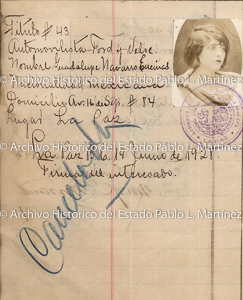 Título # 43
Automovilista Ford y Velie
Nombre Guadalupe Navarro Encinas
Nacionalidad mexicana
Domicilio Av. 16 de Sep. # 84
Lugar La Paz
La Paz B.C. 19 Junio de 1925
Firma del interesado.
Cancelada
© Archivo Histórico del Estado Pablo L. Martínez
© Archivo Histórico del Estado Pablo L. Martínez
© Archivo Histórico del Estado Pablo L. Martínez